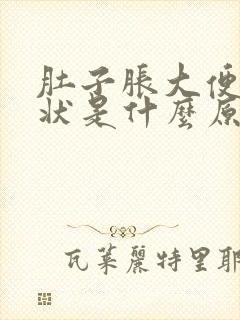 肚子脹大便
狀是什麼原
瓦萊麗特里耶